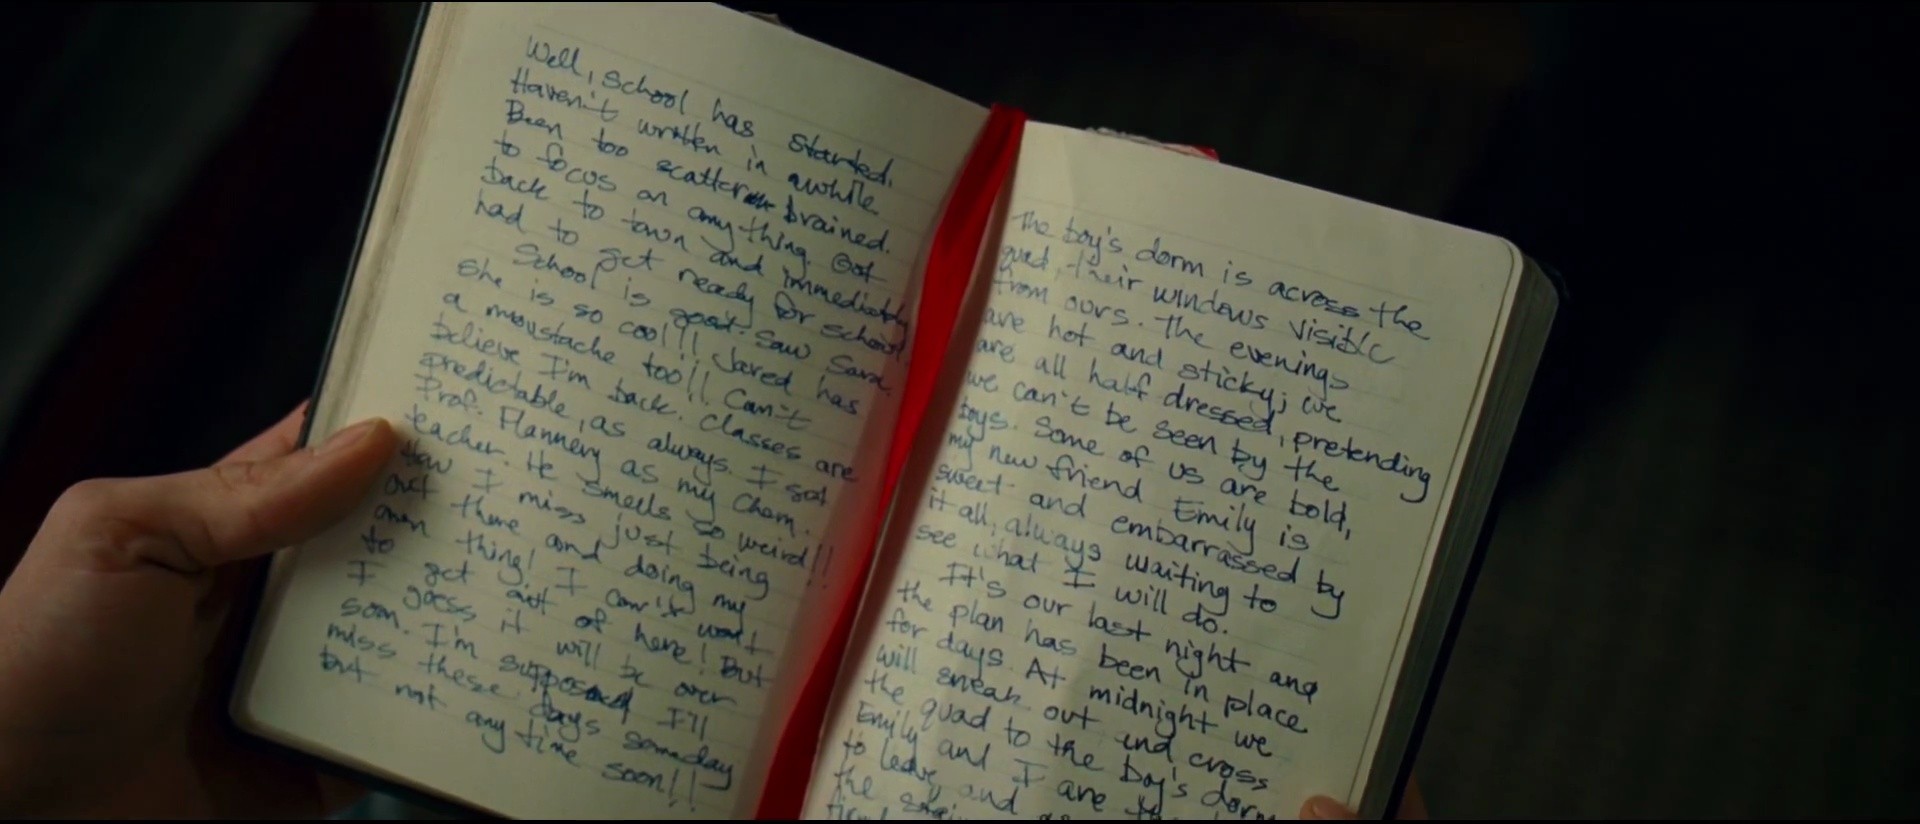 Well, school has started.
Haven't written in awhile.
Been too scatter brained.
to focus on anything. Got
back to town and immediately
had to get ready for school.
School is good. Saw Sara.
She is so cool!!! Jared has
a moustache too!! Can't
believe I'm back. Classes are
predictable, as always. I sat
Prof. Flannery as my Chem.
teacher. He smells so weird!!
How I miss just being
out there and doing my
own thing! I can't wait
to get out of here! But
I guess it will be over
soon. I'm supposed I'll
miss these days someday
but not any time soon!!
The boy's dorm is across the
quad, their windows visible
from ours. The evenings
are hot and sticky; we
are all half dressed, pretending
we can't be seen by the
boys. Some of us are bold,
my new friend Emily is
sweet and embarrassed by
it all, always waiting to
see what I will do.
It's our last night and
the plan has been in place
for days. At midnight we
will sneak out and cross
the quad to the boy's dorm
Emily and I are the
to leave, and
the